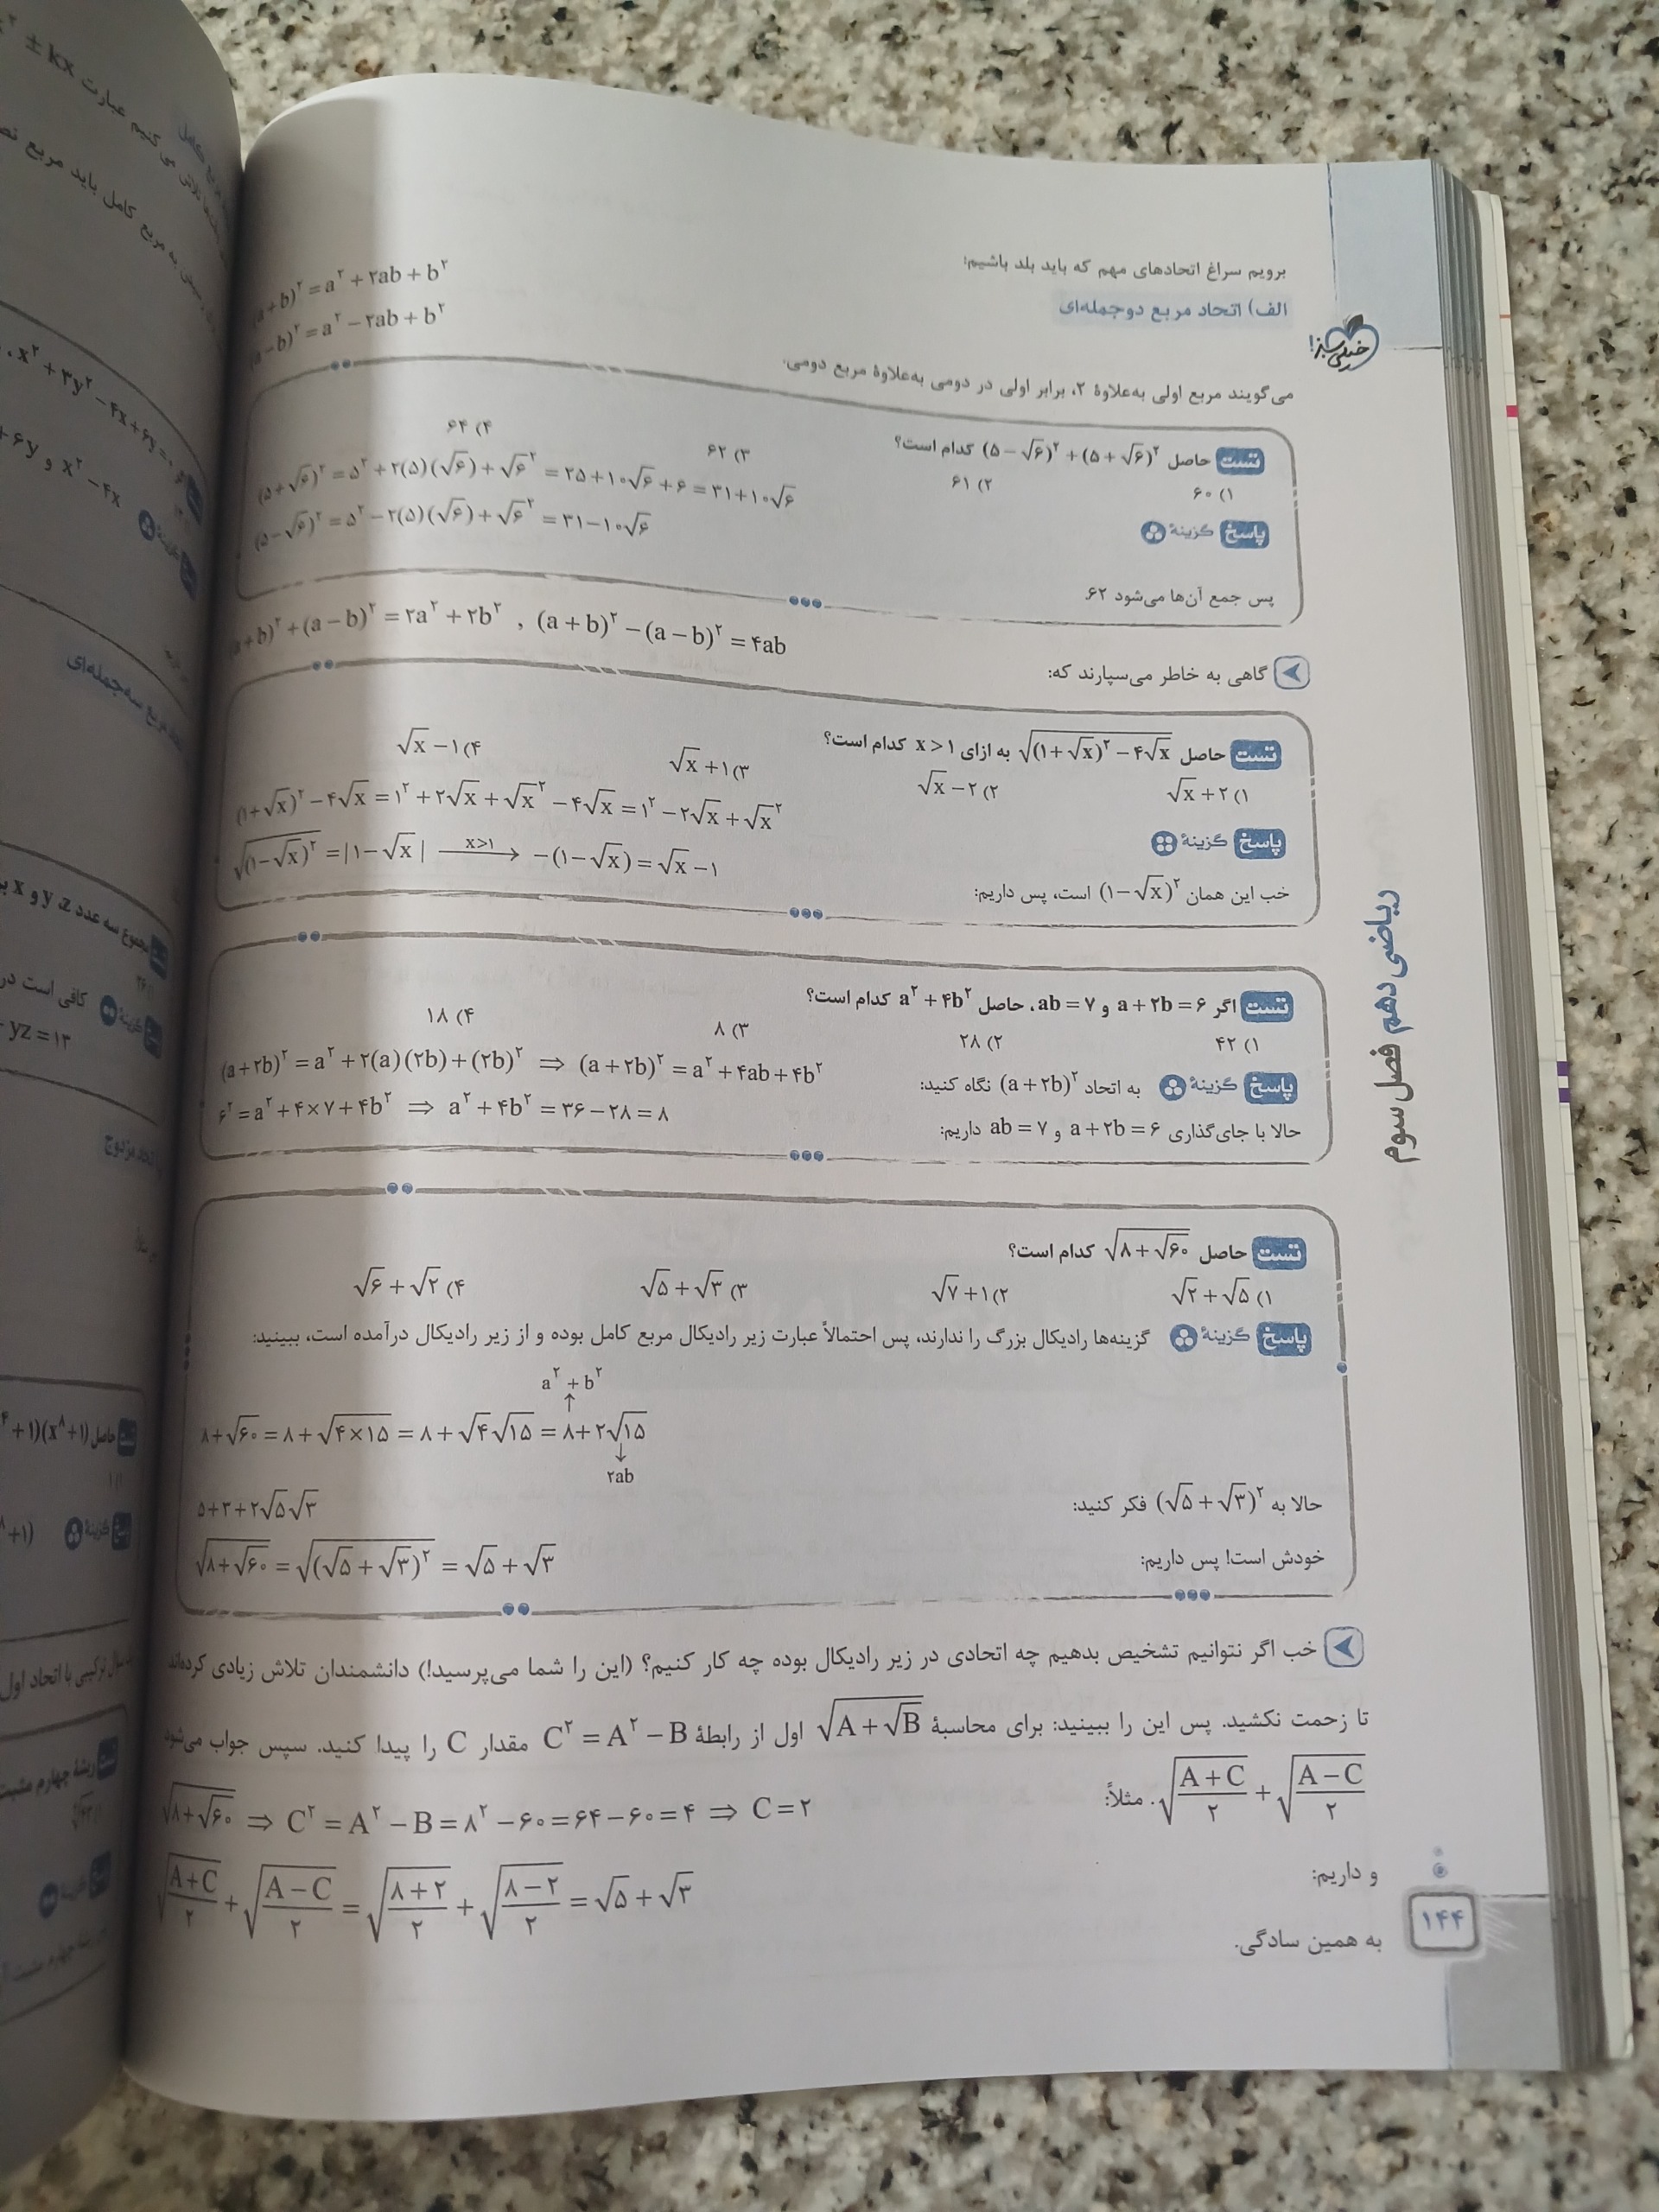 برویم سراغ اتحادهای مهم که باید بلد باشیم:
الف) اتحاد مربع دوجمله‌ای
(a+b)² = a² + ۲ab + b²
(a−b)² = a² − ۲ab + b²
می‌گویند مربع اولی به‌علاوهٔ ۲، برابر اولی در دومی به‌علاوهٔ مربع دومی.
خیلی سبز!
تست حاصل (۵−√۶)² + (۵+√۶)² کدام است؟
۱) ۶۰ ۲) ۶۱ ۳) ۶۲ ۴) ۶۴
پاسخ گزینهٔ
(۵+√۶)² = ۵² + ۲(۵)(√۶) + √۶² = ۲۵+۱۰√۶+۶ = ۳۱+۱۰√۶
(۵−√۶)² = ۵² − ۲(۵)(√۶) + √۶² = ۳۱−۱۰√۶
پس جمع آن‌ها می‌شود ۶۲.
گاهی به خاطر می‌سپارند که:
(a+b)² + (a−b)² = ۲a² + ۲b² , (a+b)² − (a−b)² = ۴ab
تست حاصل √((۱+√x)² − ۴√x) به ازای x>۱ کدام است؟
۱) √x+۲ ۲) √x−۲ ۳) √x+۱ ۴) √x−۱
پاسخ گزینهٔ
(۱+√x)² − ۴√x = ۱² + ۲√x + √x² − ۴√x = ۱² − ۲√x + √x²
خب این همان (۱−√x)² است، پس داریم:
√((۱−√x)²) = |۱−√x| —x>۱→ −(۱−√x) = √x−۱
تست اگر a+۲b=۶ و ab=۷، حاصل a²+۴b² کدام است؟
۱) ۴۲ ۲) ۲۸ ۳) ۸ ۴) ۱۸
پاسخ گزینهٔ به اتحاد (a+۲b)² نگاه کنید:
(a+۲b)² = a² + ۲(a)(۲b) + (۲b)² ⇒ (a+۲b)² = a² + ۴ab + ۴b²
حالا با جای‌گذاری a+۲b=۶ و ab=۷ داریم:
۶² = a² + ۴×۷ + ۴b² ⇒ a² + ۴b² = ۳۶−۲۸ = ۸
تست حاصل √(۸+√۶۰) کدام است؟
۱) √۲+√۵ ۲) √۷+۱ ۳) √۵+√۳ ۴) √۶+√۲
پاسخ گزینهٔ گزینه‌ها رادیکال بزرگ را ندارند، پس احتمالاً عبارت زیر رادیکال مربع کامل بوده و از زیر رادیکال درآمده است، ببینید:
a² + b²
↑
۸+√۶۰ = ۸+√(۴×۱۵) = ۸+√۴√۱۵ = ۸+۲√۱۵
↓
۲ab
حالا به (√۵+√۳)² فکر کنید:
۵+۳+۲√۵√۳
خودش است! پس داریم:
√(۸+√۶۰) = √((√۵+√۳)²) = √۵+√۳
خب اگر نتوانیم تشخیص بدهیم چه اتحادی در زیر رادیکال بوده چه کار کنیم؟ (این را شما می‌پرسید!) دانشمندان تلاش زیادی کرده‌اند
تا زحمت نکشید. پس این را ببینید: برای محاسبهٔ √(A+√B) اول از رابطهٔ C² = A² − B مقدار C را پیدا کنید. سپس جواب می‌شود
√((A+C)/۲) + √((A−C)/۲). مثلاً:
√(۸+√۶۰) ⇒ C² = A² − B = ۸² − ۶۰ = ۶۴ − ۶۰ = ۴ ⇒ C = ۲
و داریم:
√((A+C)/۲) + √((A−C)/۲) = √((۸+۲)/۲) + √((۸−۲)/۲) = √۵ + √۳
به همین سادگی.
ریاضی دهم فصل سوم
۱۴۴